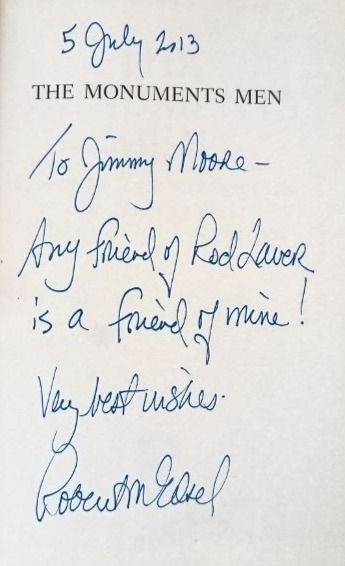 5 July 2013
THE MONUMENTS MEN
To Jimmy Moore -
Any friend of Rod Laver
is a friend of mine!
Very best wishes.
Robert M Edsel